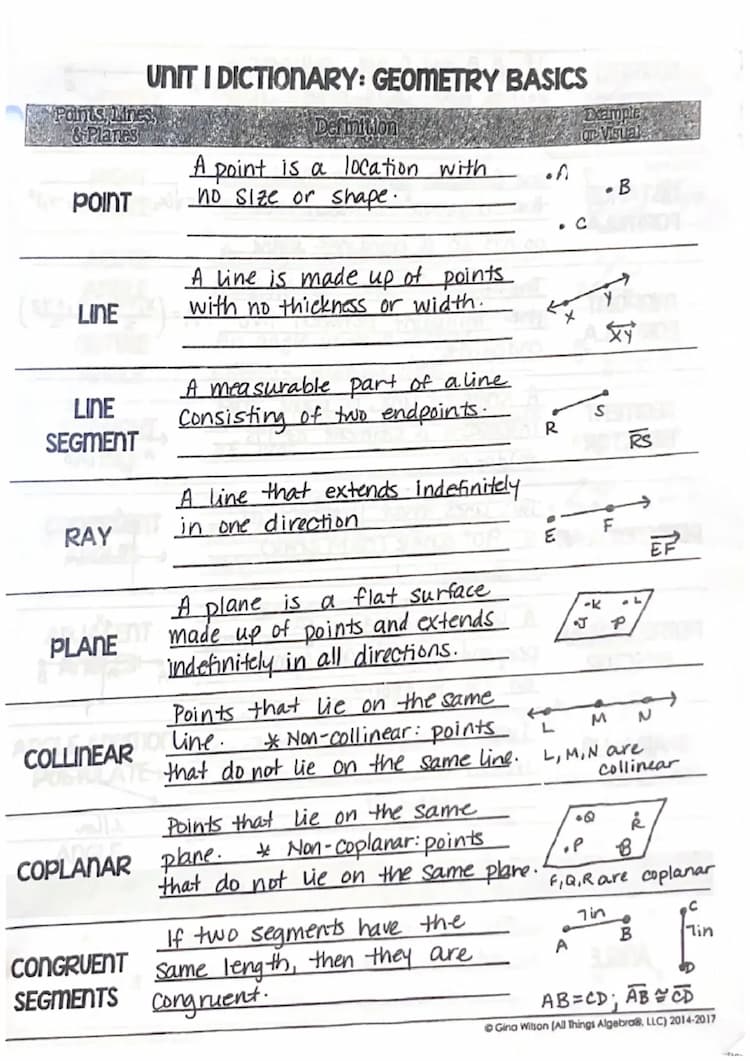 UNIT 1 DICTIONARY: GEOMETRY BASICS
Points, Lines, & Planes
Definition
Example or Visual
POINT
A point is a location with
no size or shape.
•A
•B
•C
LINE
A line is made up of points
with no thickness or width.
X
Y
XY
LINE SEGMENT
A measurable part of a line
consisting of two endpoints.
R
S
RS
RAY
A line that extends indefinitely
in one direction
E
F
EF
PLANE
A plane is a flat surface
made up of points and extends
indefinitely in all directions.
•K
•L
•J
P
COLLINEAR
Points that lie on the same
line. * Non-collinear: points
that do not lie on the same line.
L
M
N
L, M, N are
collinear
COPLANAR
Points that lie on the same
plane. * Non-coplanar: points
that do not lie on the same plane.
•Q
R
•P
B
F, Q, R are coplanar
CONGRUENT SEGMENTS
If two segments have the
same length, then they are
congruent.
7in
A
B
C
7in
D
AB=CD; AB ≅ CD
© Gina Wilson (All Things Algebra®, LLC) 2014-2017